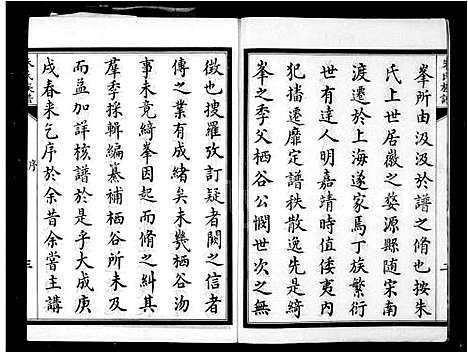 峯所由汲汲於譜之脩也按朱
氏上世居徽之婺源縣隨宋南
渡遷於上海遂家焉丁族繁衍
世有達人明嘉靖時值倭夷内
犯播遷靡定譜秩散逸先是綺
峯之季父栖谷公憫世次之無
二
徵也搜羅攷訂疑者闕之信者
傳之業有成緒矣未幾栖谷沕
事未竟綺峯因起而脩之糾其
羣季採輯編纂補栖谷所未及
而益加詳核譜於是乎大成庚
戌春来乞序於余昔余嘗主講
序
三